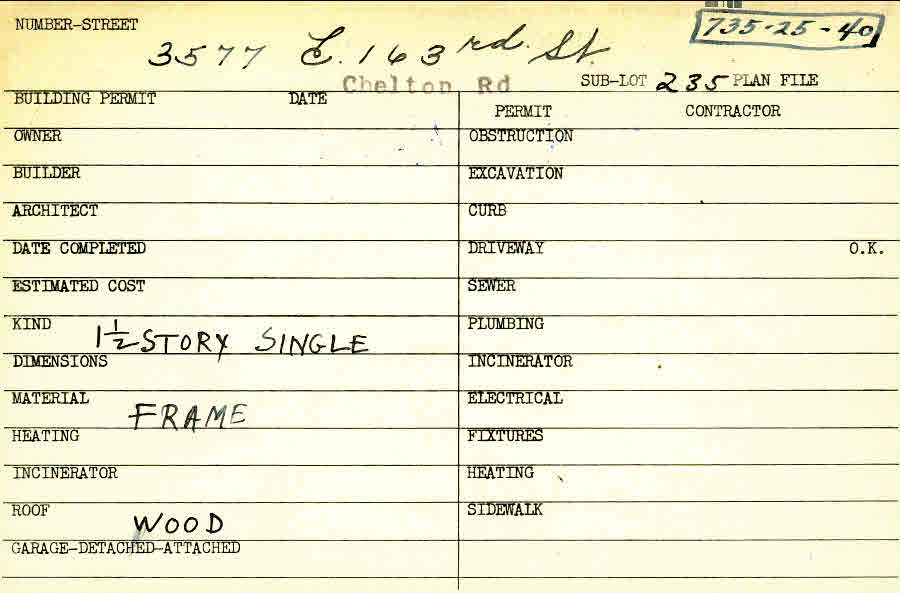 NUMBER-STREET
3577 E. 163rd. St.
735-25-40
Chelton Rd
SUB-LOT 235 PLAN FILE
BUILDING PERMIT DATE
PERMIT CONTRACTOR
OWNER
OBSTRUCTION
BUILDER
EXCAVATION
ARCHITECT
CURB
DATE COMPLETED
DRIVEWAY O.K.
ESTIMATED COST
SEWER
KIND 1 1/2 STORY SINGLE
PLUMBING
DIMENSIONS
INCINERATOR
MATERIAL FRAME
ELECTRICAL
HEATING
FIXTURES
INCINERATOR
HEATING
ROOF WOOD
SIDEWALK
GARAGE-DETACHED-ATTACHED